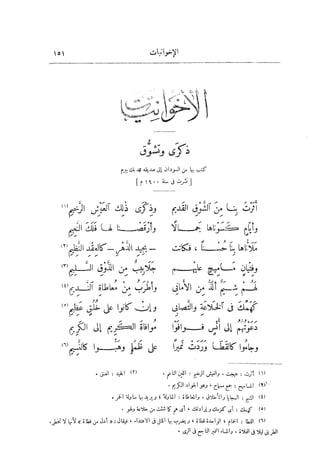 الإخوانيات ١٥١
الأخوانيات
ذكرى وتشوّق
كتب بها من السودان إلى صديقه محمد بك بيرم
[ نشرت فى سنة ١٩٠٠ م ]
أثرت بنا من الشوق القديم وذكرى ذلك العيش الرخيم (١)
وأيام كسوناها جمالا وأرقصنا لها فلك النعيم
ملأناها بنا حسنا، فكانت — بجيد الدهر — كالعقد النظيم (٢)
وفتيان مساميح عليهم جلابيب من الذوق السليم (٣)
لهم شيم ألذ من الأمانى وأطرب من معاطاة النديم (٤)
كهمك فى الخلاعة والتصابى وإن كانوا على خلق عظيم (٥)
دعوتهم إلى أنس فوافوا موافاة الكريم إلى الكريم
وجاءوا كالقطا وردت نميرا على ظمإ وهبوا كالنسيم (٦)
(١) أثرت : هيجت . والعيش الرخيم : اللين الناعم . (٢) الجيد : العنق .
(٣) المساميح : جمع مسماح ، وهو الجواد الكريم .
(٤) الشيم : السجايا والأخلاق . والمعاطاة : المناولة ؛ ويريد بها مناولة الخمر .
(٥) كهمك : أى كهمك وإرادتك . أى هم كما شئت من خلاعة ولهو .
(٦) القطا : الحمام ، الواحدة قطاة ، ويضرب بها المثل فى الاهتداء ، فيقال : « أدل من قطاة » لأنها لا تخطئ
الطريق ليلا فى الفلاة . والماء النمير الناجع فى الرى .